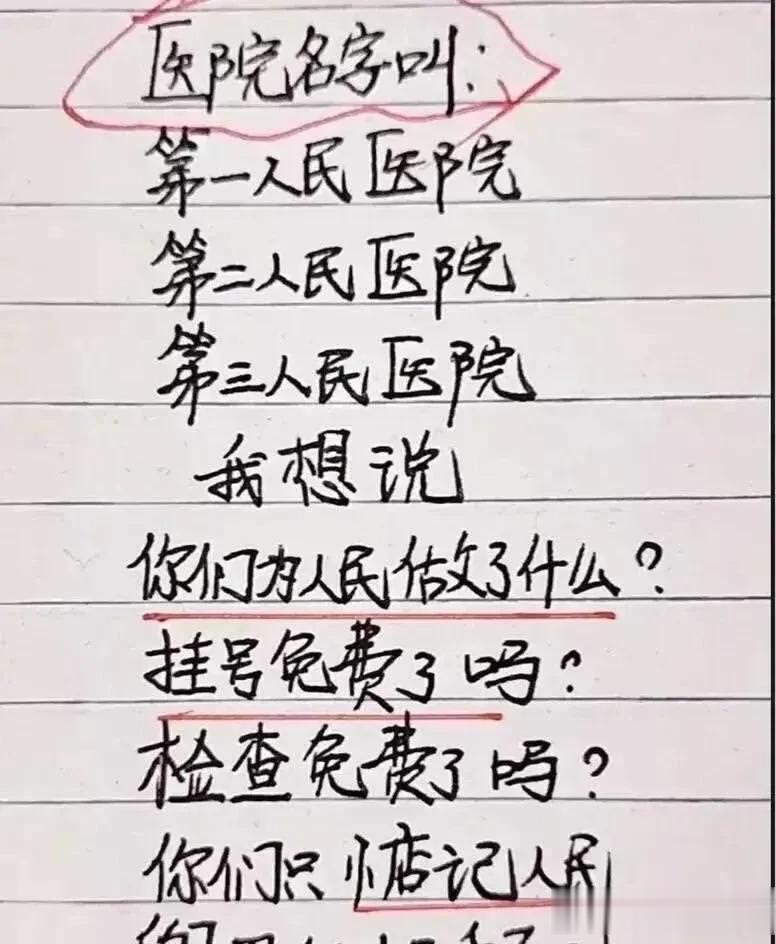 医院名字叫：
第一人民医院
第二人民医院
第三人民医院
我想说
你们为人民做了什么？
挂号免费了吗？
检查免费了吗？
你们只惦记人民